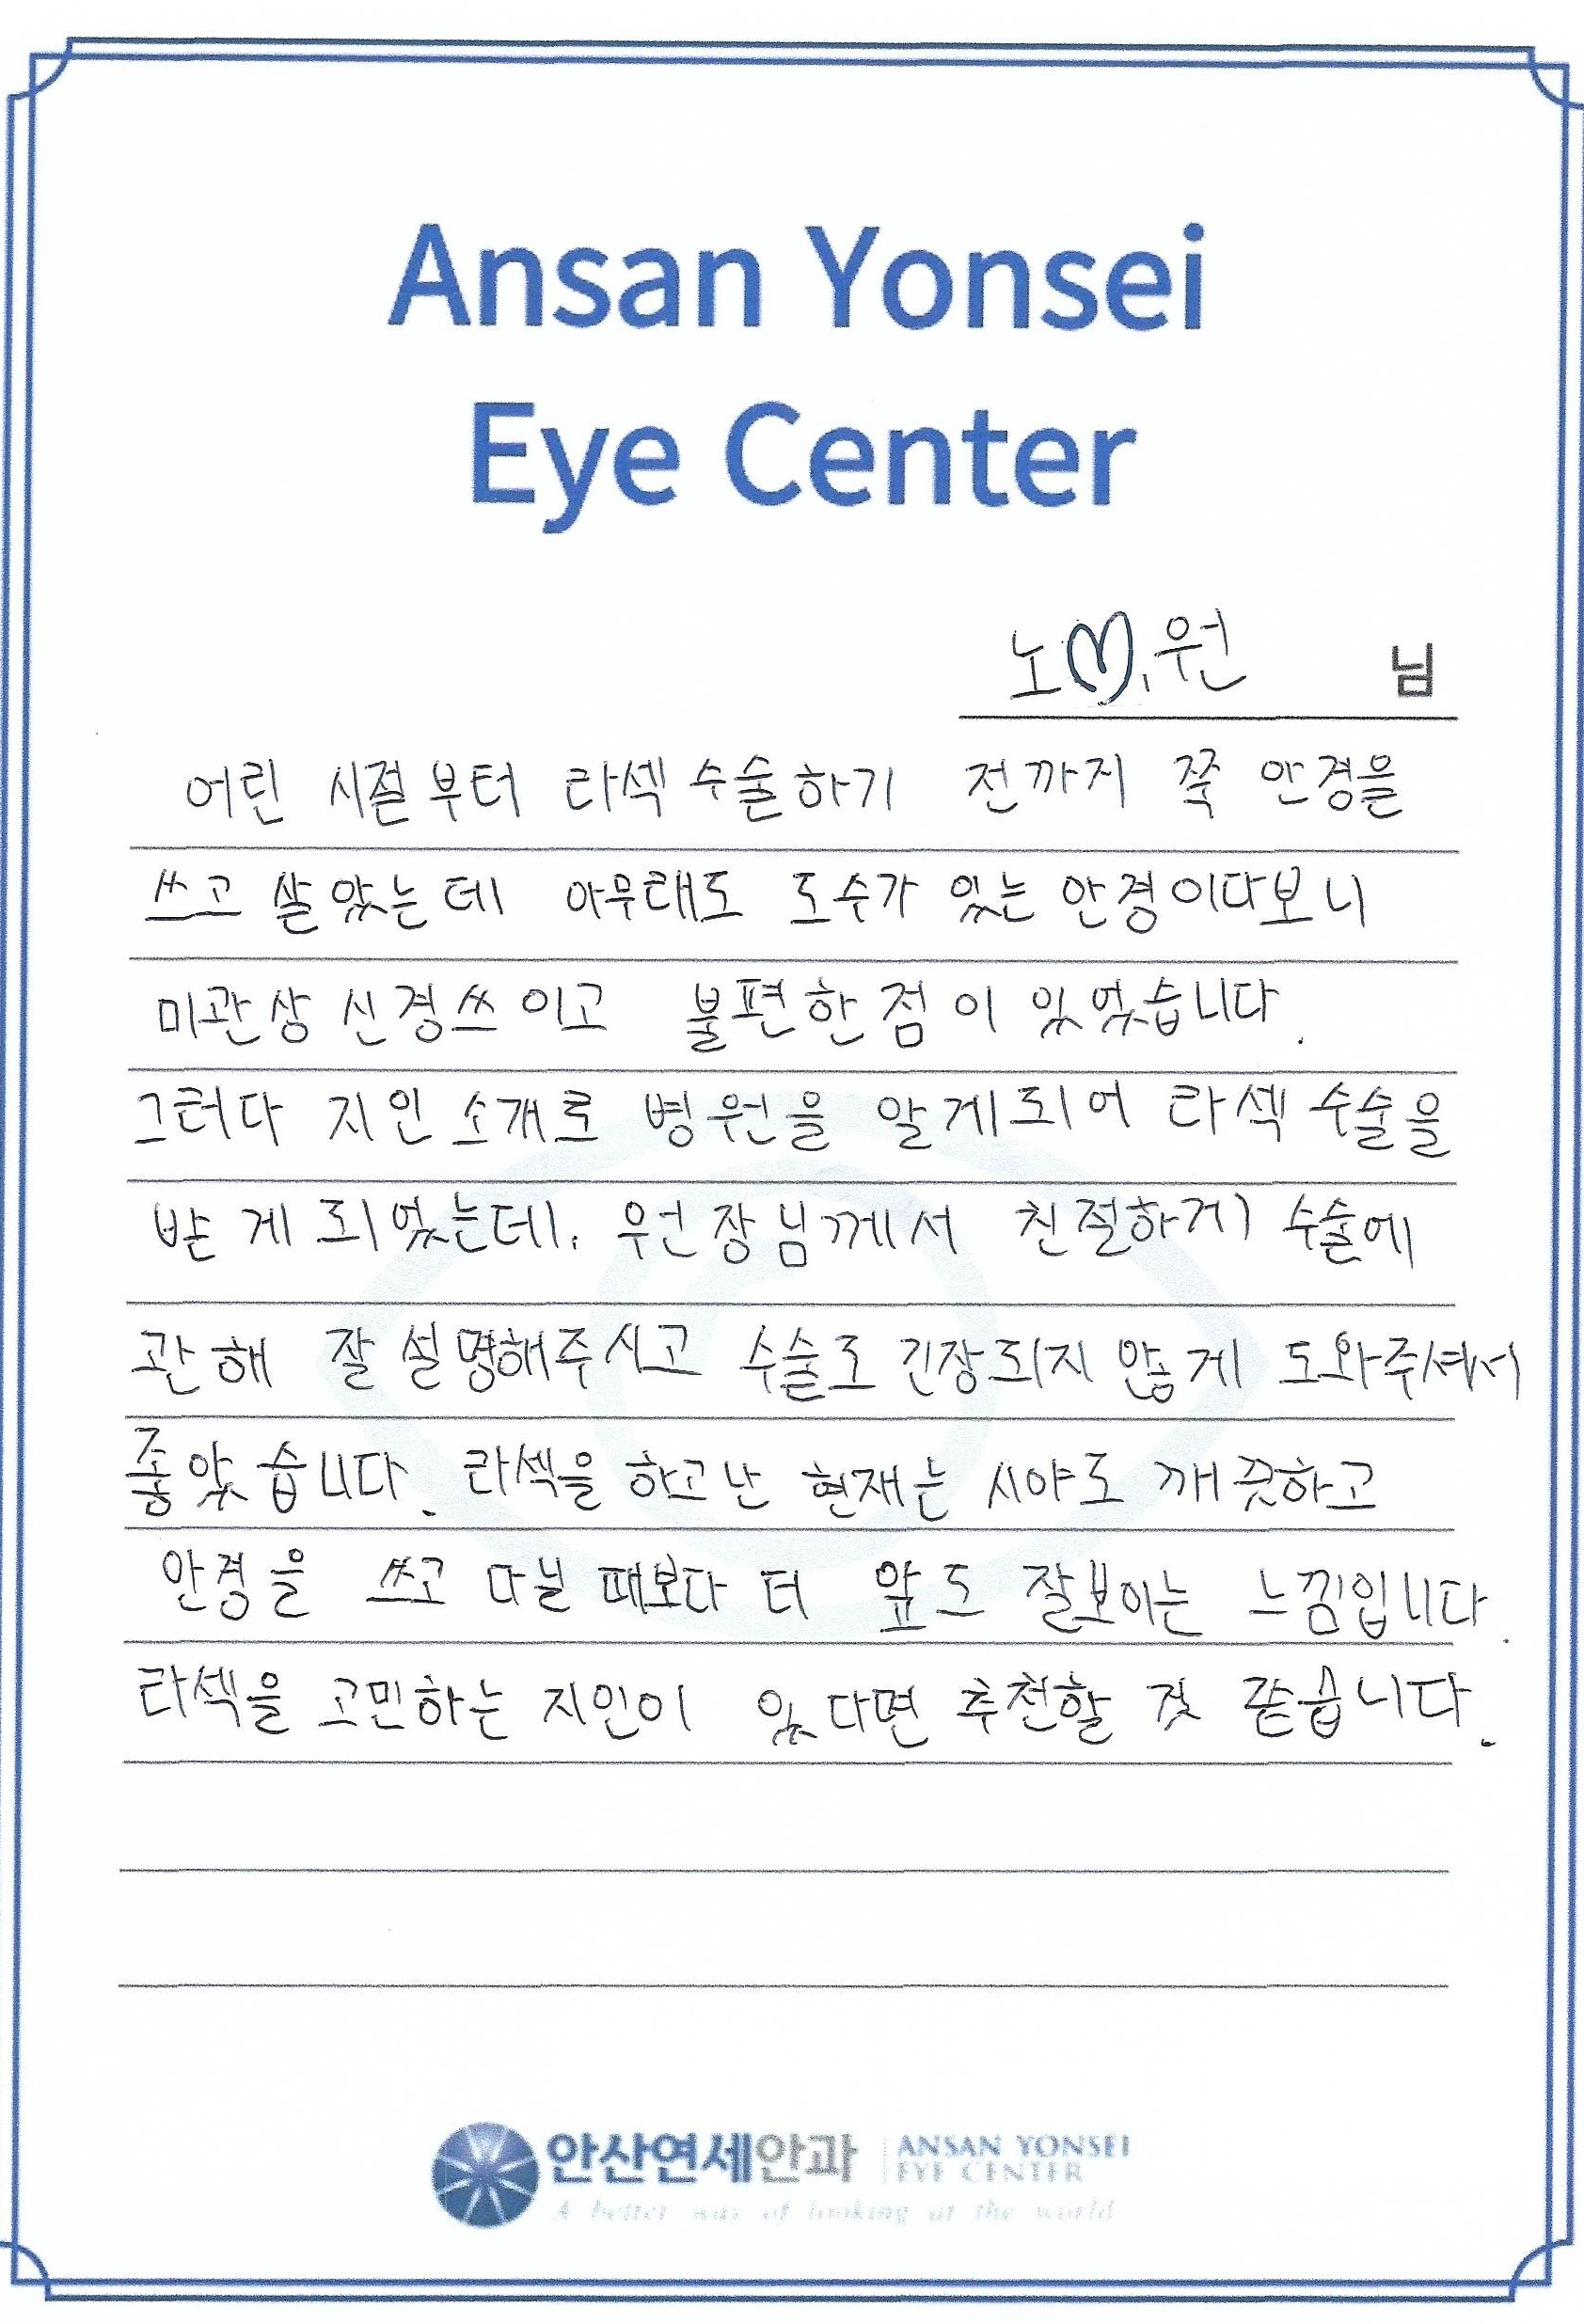 Ansan Yonsei
Eye Center
노♡원 님
어린 시절부터 라섹 수술하기 전까지 쭉 안경을
쓰고 살았는데 아무래도 도수가 있는 안경이다보니
미관상 신경쓰이고 불편한 점이 있었습니다.
그러다 지인 소개로 병원을 알게되어 라섹 수술을
받게 되었는데, 원장님께서 친절하게 수술에
관해 잘 설명해주시고 수술도 긴장되지 않게 도와주셔서
좋았습니다. 라섹을 하고난 현재는 시야도 깨끗하고
안경을 쓰고 다닐 때보다 더 앞도 잘보이는 느낌입니다.
라섹을 고민하는 지인이 있다면 추천할 것 같습니다.
안산연세안과 ANSAN YONSEI
EYE CENTER
A better way of looking at the world